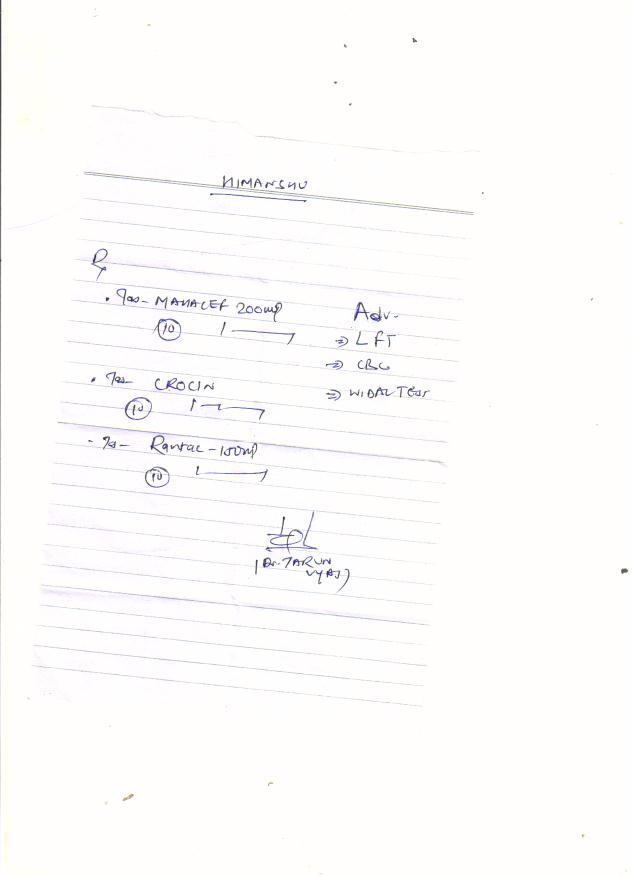 HIMANSHU
Rx
. Tab- MAHACEF 200mg
(10) 1 ——— 1
. Tab- CROCIN
(10) 1 — — 1
- Tab- Rantac - 150mg
(10) 1 ——— 1
Adv-
⇒ LFT
⇒ CBC
⇒ WIDAL TEST
(Dr. TARUN
VYAS)